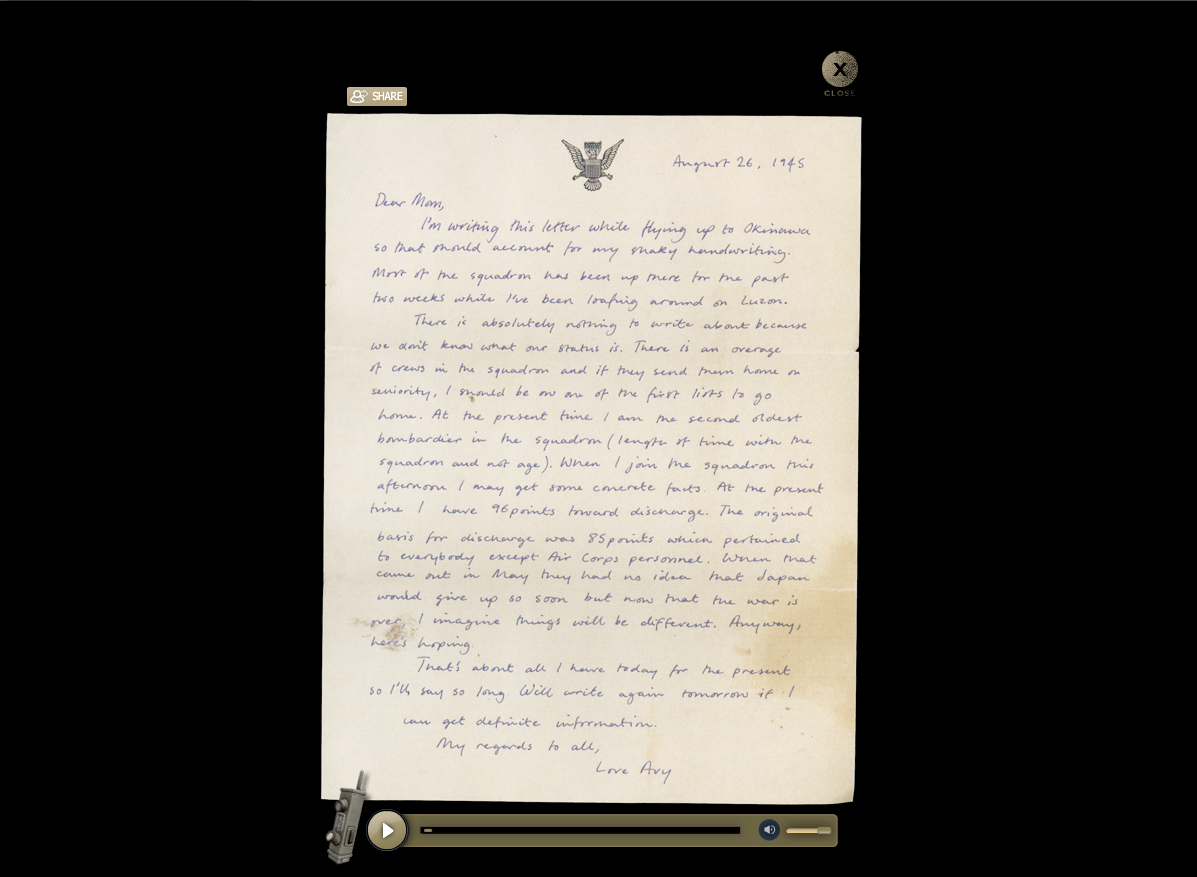 X
CLOSE
SHARE
August 26, 1945
Dear Mom,
I'm writing this letter while flying up to Okinawa
so that should account for my shaky handwriting.
Most of the squadron has been up there for the past
two weeks while I've been loafing around on Luzon.
There is absolutely nothing to write about because
we don't know what our status is. There is an overage
of crews in the squadron and if they send them home on
seniority, I should be on one of the first lists to go
home. At the present time I am the second oldest
bombardier in the squadron (length of time with the
squadron and not age). When I join the squadron this
afternoon I may get some concrete facts. At the present
time I have 96 points toward discharge. The original
basis for discharge was 85 points which pertained
to everybody except Air Corps personnel. When that
came out in May they had no idea that Japan
would give up so soon but now that the war is
over, I imagine things will be different. Anyway,
here's hoping.
That's about all I have today for the present
so I'll say so long. Will write again tomorrow if I
can get definite information.
My regards to all,
Love Avy